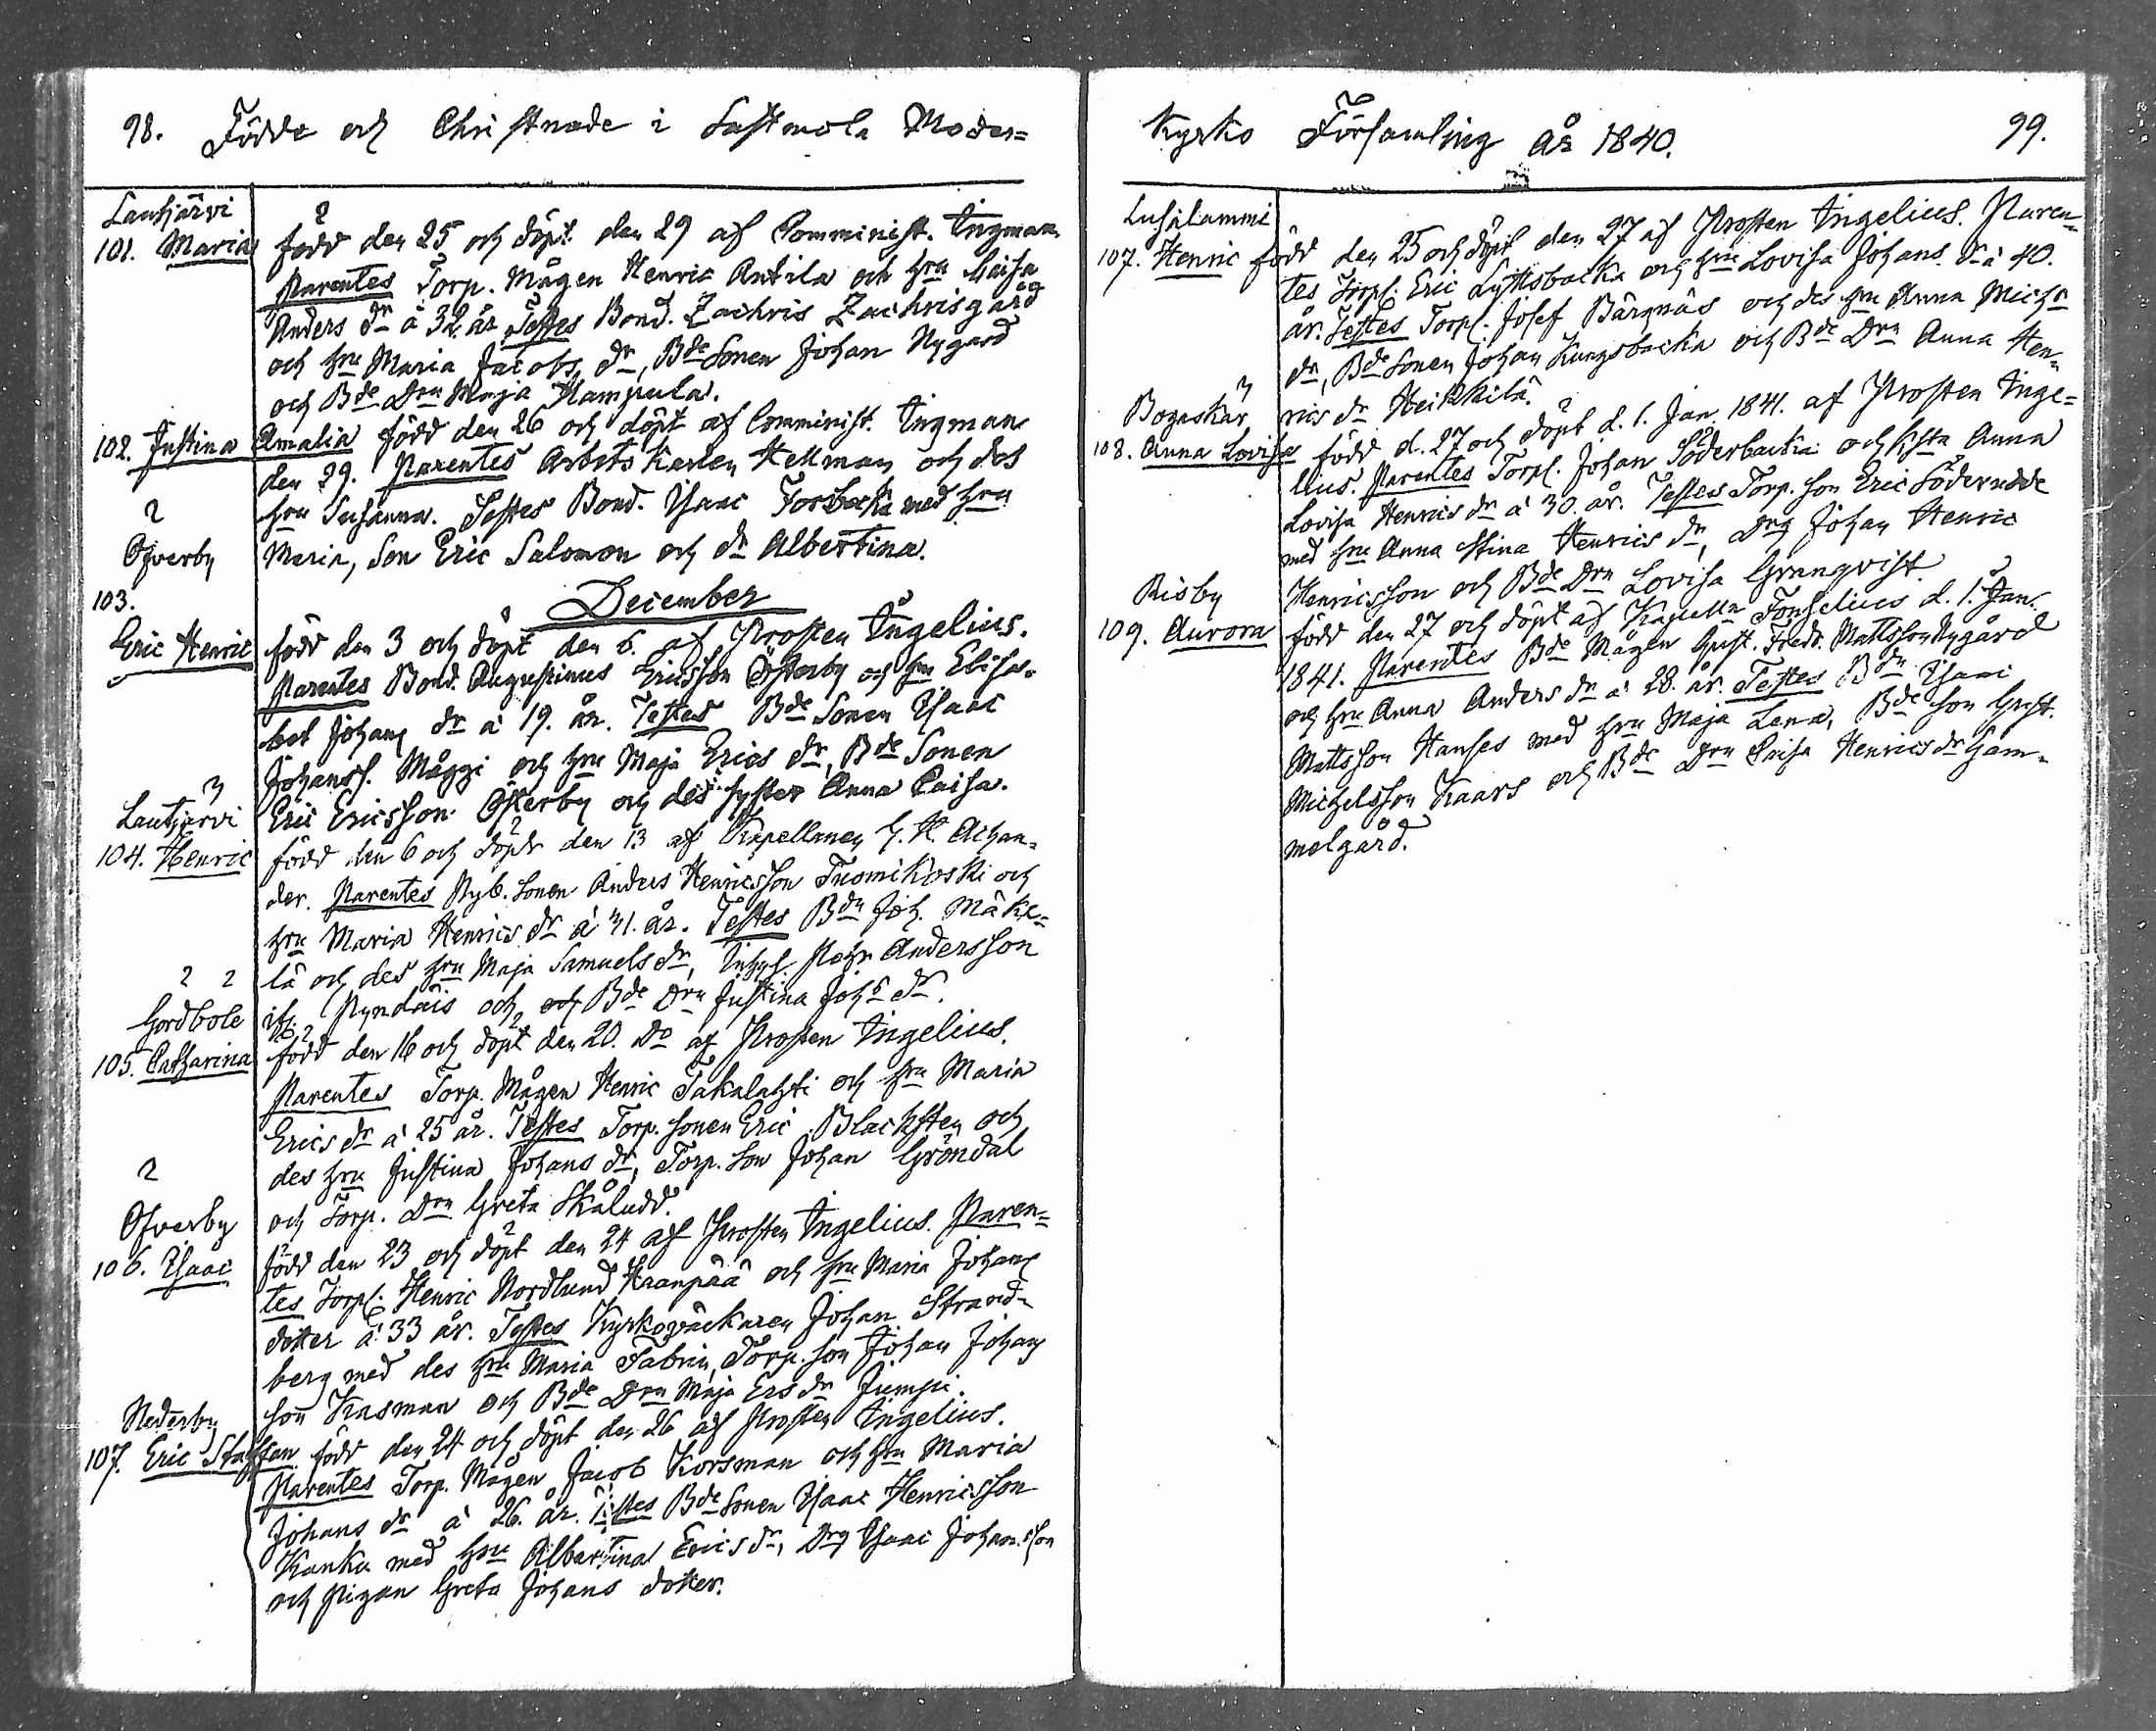 98. Födde och Christnade i Lastmola Moder=
Lautjärvi
101. Maria född den 25 och döpt den 29 af Comminist. Ingman.
Parentes Torp. Mågen Henric Antila och hru Caisa
Anders dr à 32 år Testes Bond. Zachris Zachrisgård
och hru Maria Jacobs dr, Bde Sonen Johan Nygård
och Bde Drn Maja Hampula.
102. Justina Amalia född den 26 och döpt af Comminist. Ingman
den 29. Parentes Arbets Karlen Hellman och des
hru Susanna. Testes Bond. Isaac Forsbacka med hru
Ofverby Maria, Son Eric Salomon och dr Albertina.
103. December
Eric Henric född den 3 och döpt den 6. af Prosten Ingelius.
Parentes Bond. Augustinus Ericsson Österby och hru Elisa=
bet Johans dr à 19. år. Testes Bde Sonen Isaac
Johanss. Mäggi och hru Maja Erics dr, Bde Sonen
Lautjärvi Eric Ericsson Österby och des syster Anna Caisa.
104. Henric född den 6 och döpt den 13 af Kapellanen G. H. Achan=
der. Parentes Nyb. Sonen Anders Henricsson Tuomikoski och
hru Maria Henrics dr à 31. år. Testes Bdn Joh. Mäke=
lä och des hru Maja Samuels dr, Inhys. Andersson
Gordbole Pyndäis och, och Bde Drn Justina Johs dr.
105. Catharina född den 16 och döpt den 20. Do af Prosten Ingelius.
Parentes Torp. Mågen Henric Takalahti och hru Maria
Erics dr à 25 år. Testes Torp. sonen Eric Blacksten och
des hru Justina Johans dr, Torp. Son Johan Gröndal
Ofverby och Torp. Drn Greta Skåludd.
106. Isaac född den 23 och döpt den 24 af Prosten Ingelius. Paren=
tes Torp. Henric Nordlund Haanpää och hru Maria Johans
dotter à 33 år. Testes Kyrkoväckaren Johan Strand=
berg med des hru Maria Fabrin, Torp. son Johan Johans
Nederby son Krasman och Bde Drn Maja Ers dr Jumpi.
107. Eric Staffan född den 24 och döpt den 26 af Prosten Ingelius.
Parentes Torp. Mågen Jacob Korsman och hru Maria
Johans dr à 26. år. Testes Bde Sonen Isaac Henricsson
Kanka med hru Albertina Erics dr, Drg Isaac Johansson
och Pigan Greta Johans dotter.
Kyrko Församling år 1840. 99.
Lusalammi
107. Henric född den 25 och döpt den 27 af Prosten Ingelius. Paren=
tes Torp. Eric Lyttsbacka och hru Lovisa Johans dr à 40.
år. Testes Torp. Josef Bärgnäs och des hru Anna Michs
dr, Bde Sonen Johan Kungsbacka och Bde Drn Anna Hen=
Bogaskär rics dr Heikkilä.
108. Anna Lovisa född d. 27 och döpt d. 1. Jan. 1841. af Prosten Inge=
lius. Parentes Torp. Johan Söderbacka och hsta Anna
Lovisa Henrics dr à 30. år. Testes Torp. son Eric Söderudde
med hru Anna Stina Henrics dr, Drg Johan Henric
Risby Henricsson och Bde Drn Lovisa Granqvist.
109. Aurora född den 27 och döpt af Kapelln Fonselius d. 1. Jan.
1841. Parentes Bde Mågen Gust. Fredr. Mattsson Nygård
och hru Anna Anders dr à 28. år. Testes Bdn Isaac
Mattsson Hanses med hru Maja Lena, Bde Son Gust.
Michelsson Kaars och Bde Drn Caisa Henrics dr Gam=
melgård.